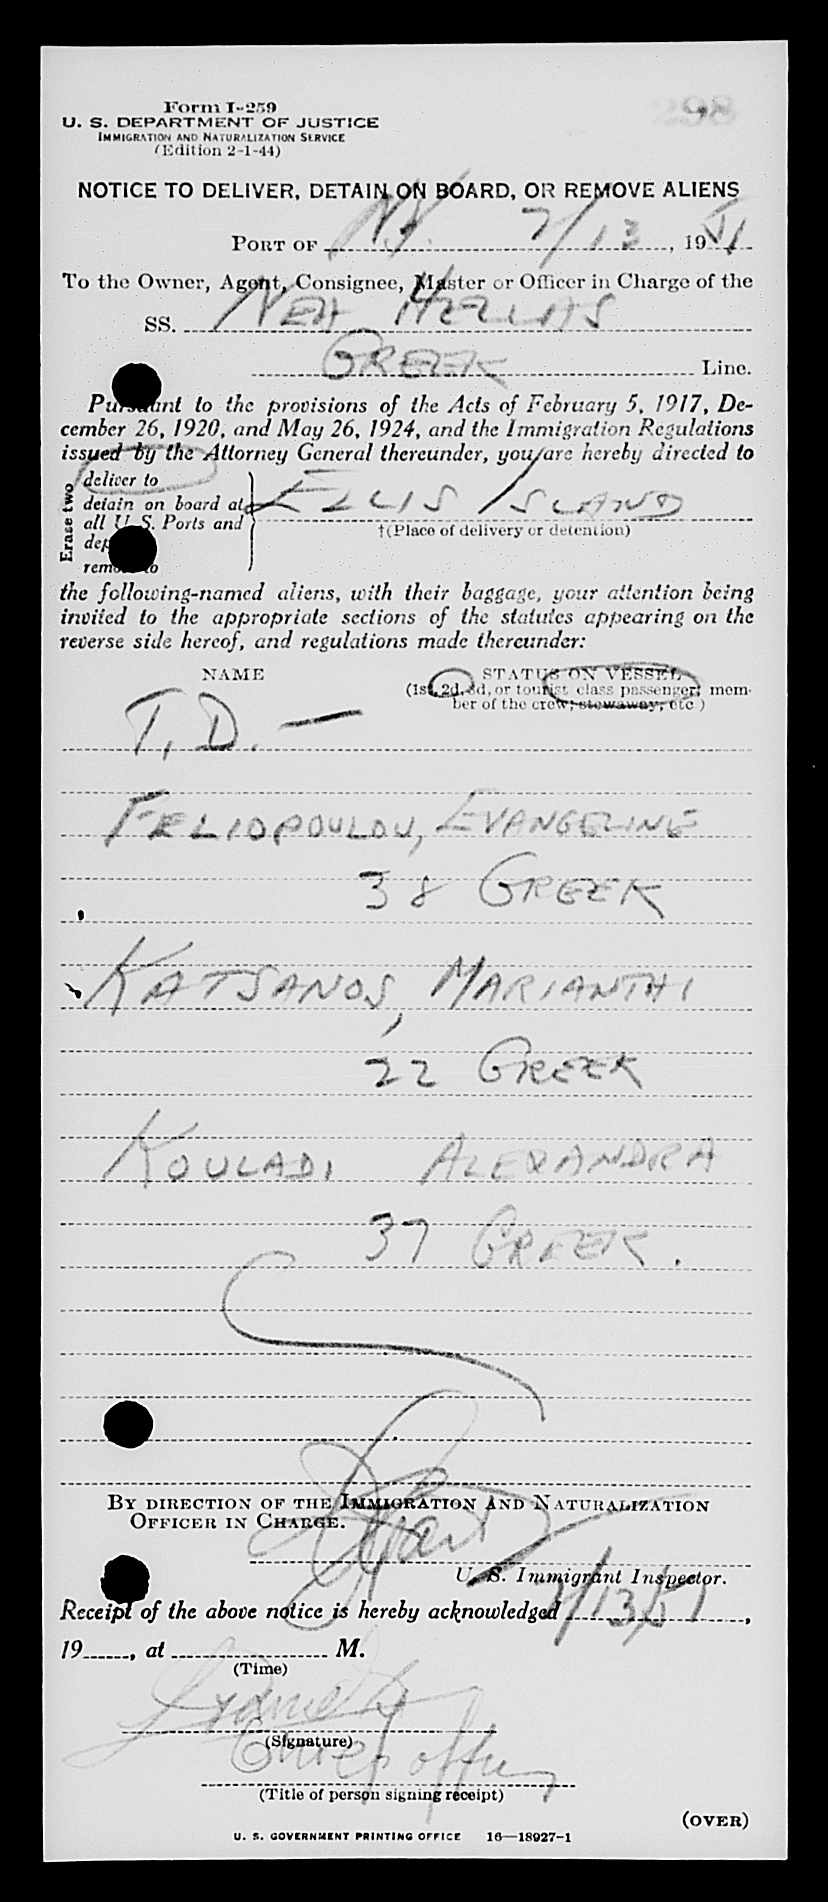 298
Form I-259
U. S. DEPARTMENT OF JUSTICE
IMMIGRATION AND NATURALIZATION SERVICE
(Edition 2-1-44)
NOTICE TO DELIVER, DETAIN ON BOARD, OR REMOVE ALIENS
PORT OF N.Y. 7/13, 1951
To the Owner, Agent, Consignee, Master or Officer in Charge of the
SS. NEA HELLAS
GREEK Line.
Pursuant to the provisions of the Acts of February 5, 1917, De-
cember 26, 1920, and May 26, 1924, and the Immigration Regulations
issued by the Attorney General thereunder, you are hereby directed to
Erase two
deliver to
detain on board at
all U. S. Ports and
remove to
ELLIS ISLAND
†(Place of delivery or detention)
the following-named aliens, with their baggage, your attention being
invited to the appropriate sections of the statutes appearing on the
reverse side hereof, and regulations made thereunder:
NAME STATUS ON VESSEL
(1st, 2d, 3d, or tourist class passenger; mem-
ber of the crew; stowaway; etc.)
T. D. —
FELIOPOULOU, EVANGELINE
38 GREEK
KATSANOS, MARIANTHI
22 GREEK
KOULADI ALEXANDRA
37 GREEK.
BY DIRECTION OF THE IMMIGRATION AND NATURALIZATION
OFFICER IN CHARGE.
U. S. Immigrant Inspector.
Receipt of the above notice is hereby acknowledged 7/13/51,
19......, at M.
(Time)
(Signature)
Chief officer
(Title of person signing receipt)
(OVER)
U. S. GOVERNMENT PRINTING OFFICE 16—18927-1